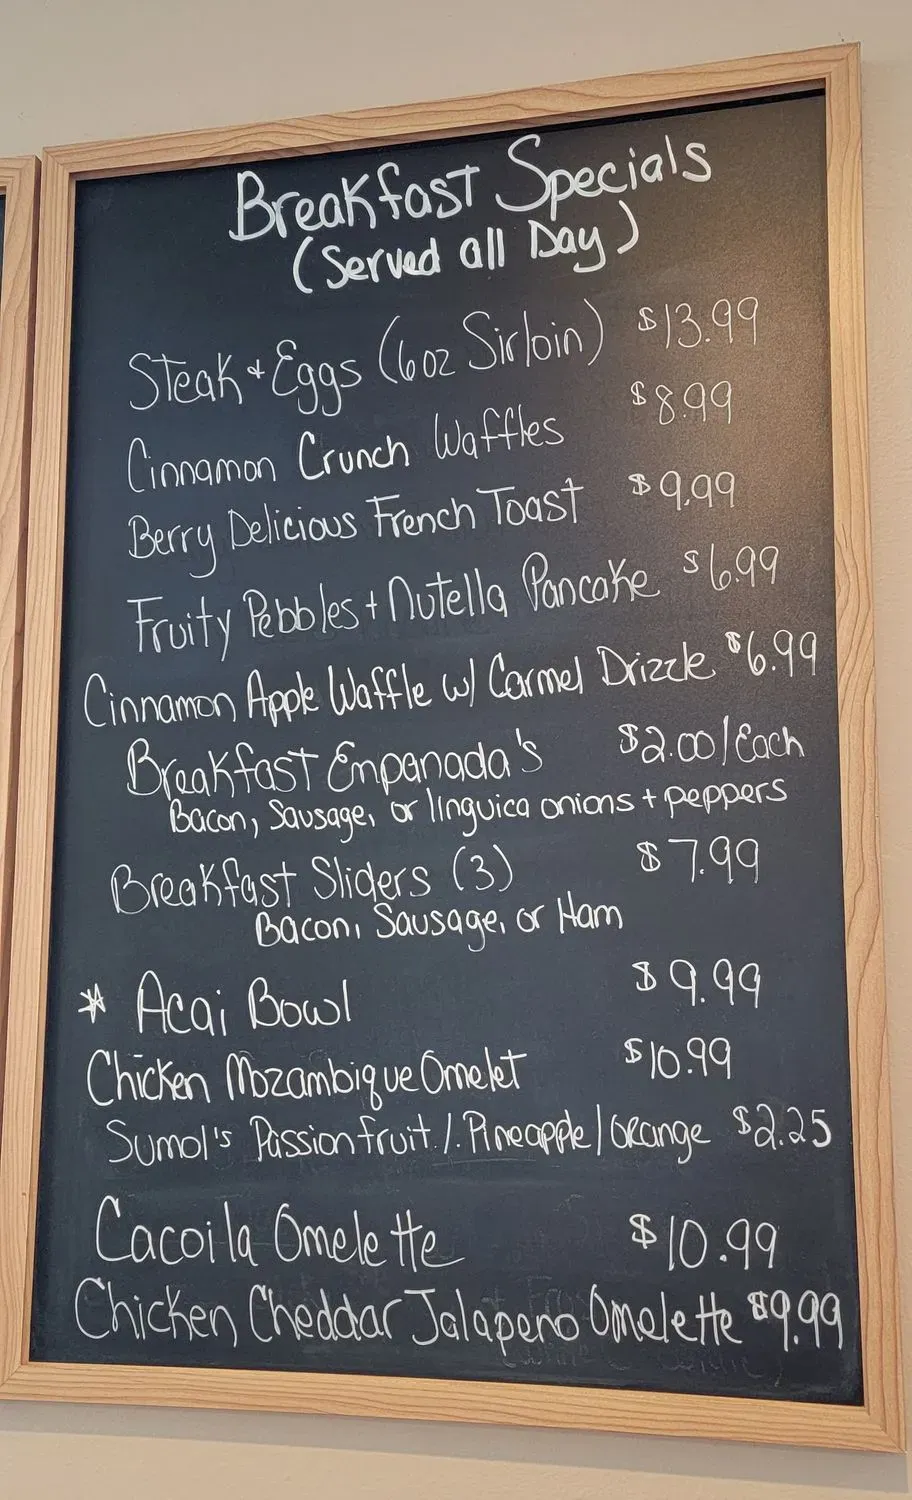 Breakfast Specials
(Served all Day)
Steak + Eggs (6oz Sirloin) $13.99
Cinnamon Crunch Waffles $8.99
Berry Delicious French Toast $9.99
Fruity Pebbles + Nutella Pancake $6.99
Cinnamon Apple Waffle w/ Carmel Drizzle $6.99
Breakfast Empanada's $2.00/Each
Bacon, Sausage, or linguica onions + peppers
Breakfast Sliders (3) $7.99
Bacon, Sausage, or Ham
* Acai Bowl $9.99
Chicken Mozambique Omelet $10.99
Sumol's Passionfruit / Pineapple / Orange $2.25
Cacoila Omelette $10.99
Chicken Cheddar Jalapeno Omelette $9.99